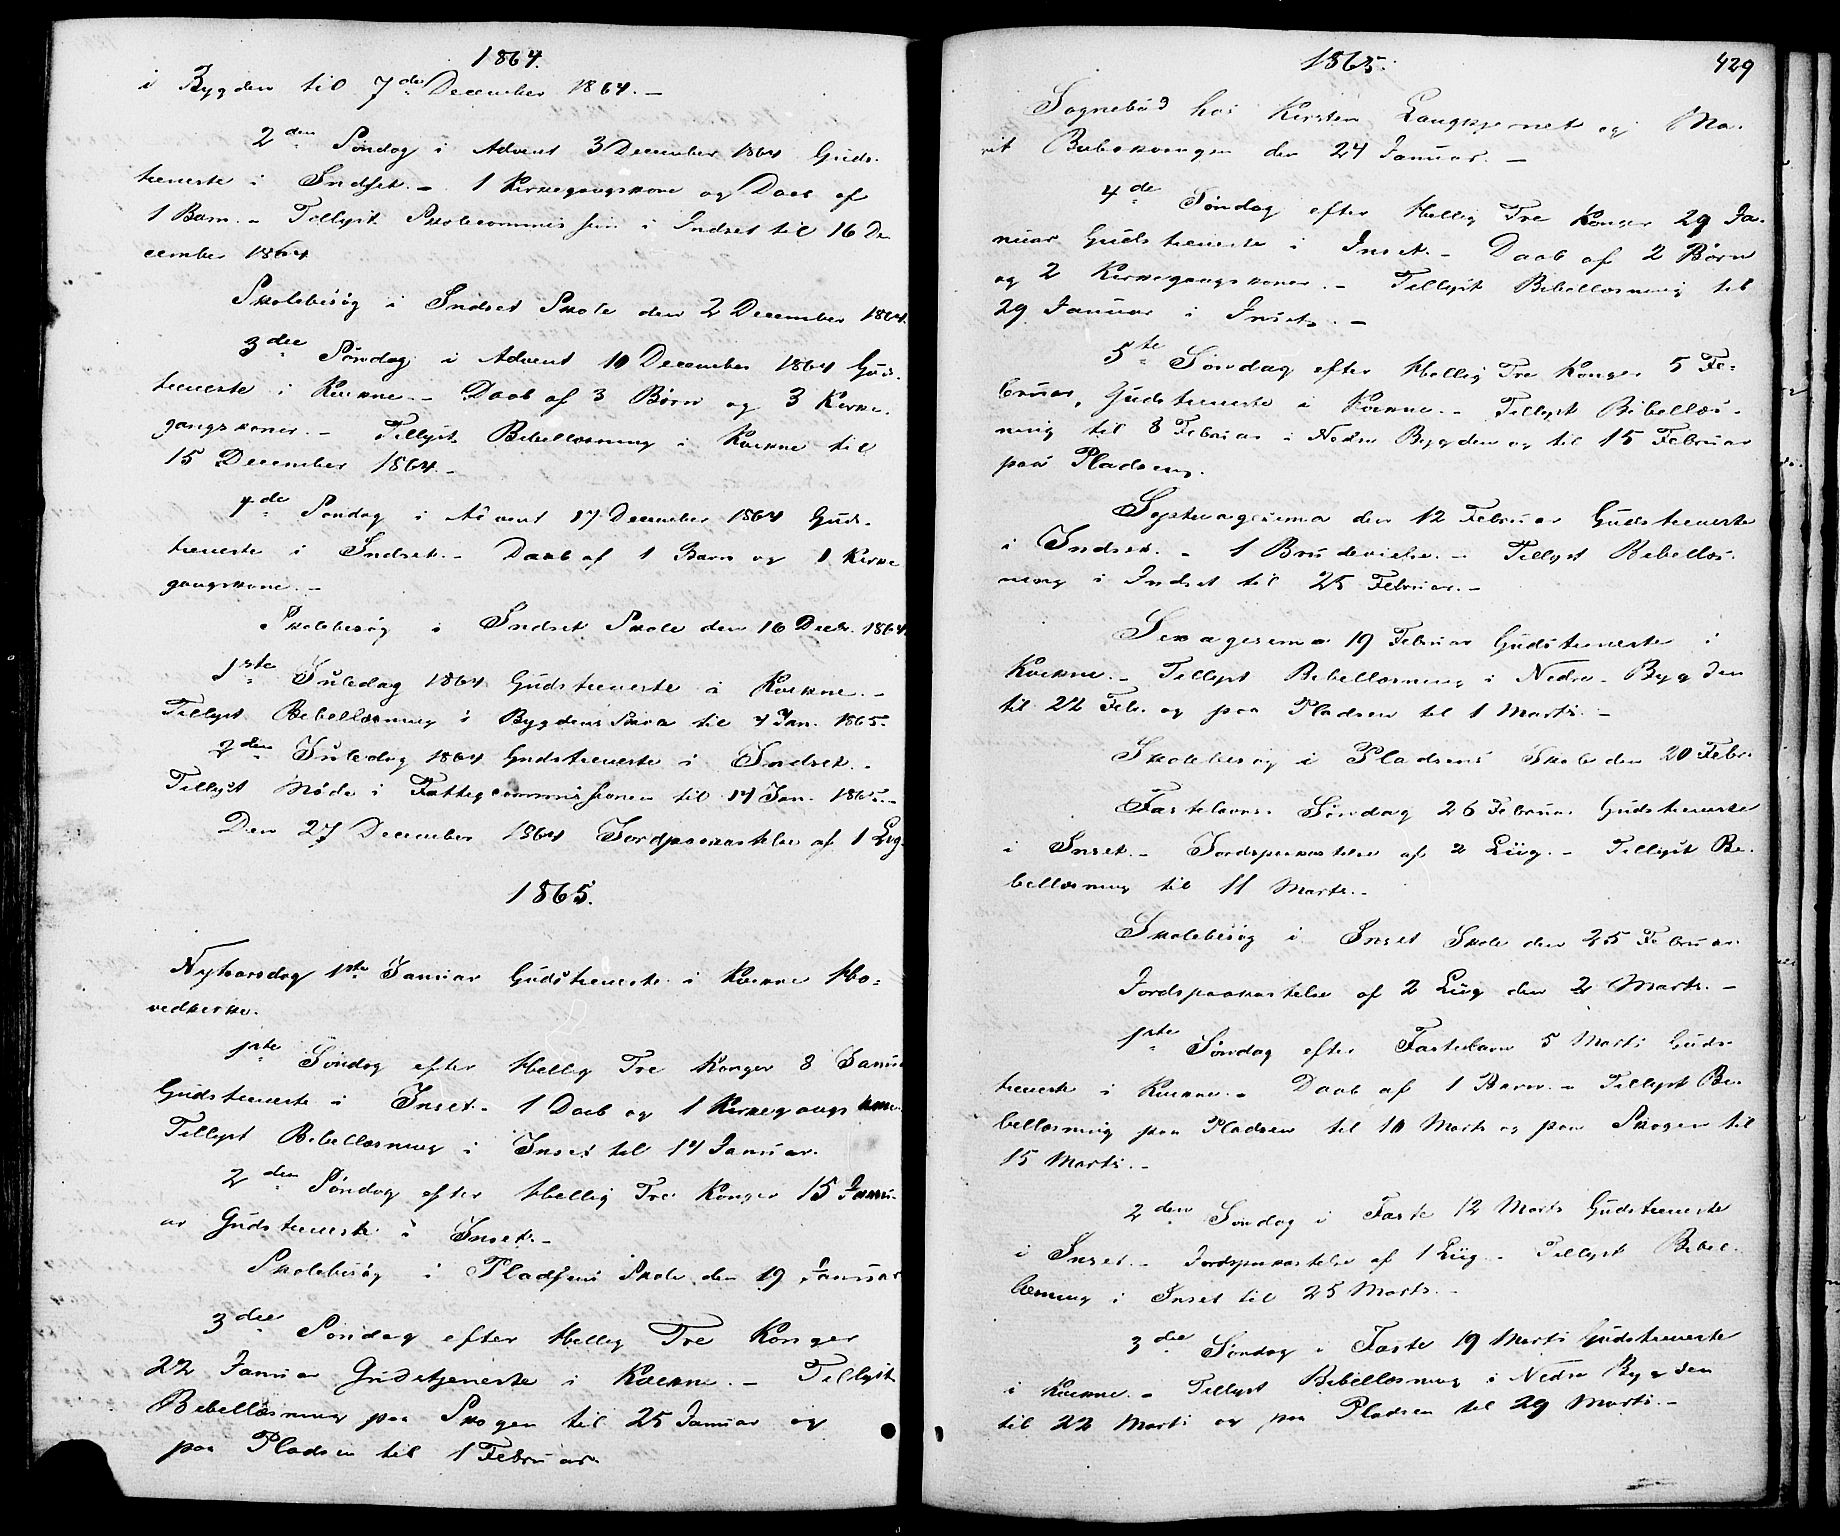 1864.
i Bygden til 7de December 1864. –
2den Søndag i Advent 3 December 1864 Guds-
tieneste i Indset. – 1 Kirkegangskone og Daab af
1 Barn. – Tillyst Skolecommission i Indset til 16 De
cember 1864
Skolebesøg i Indset Skole den 2 December 1864.
3die Søndag i Advent 10 December 1864 Guds-
tieneste i Kvikne. – Daab af 3 Børn og 3 Kirke-
gangskoner. – Tillyst Bibellæsning i Kvikne til
15 December 1864. –
4de Søndag i Advent 17 December 1864 Guds-
tieneste i Indset. – Daab af 1 Barn og 1 Kirke
gangskone. –
Skolebesøg i Indset Skole den 16 Decbr. 1864
1ste Juledag 1864 Gudstieneste i Kvikne. –
Tillyst Bibellæsning i Bygdens Skole til 4 Jan. 1865.
2den Juledag 1864 Gudstieneste i Indset. –
Tillyst Møde i Fattigcommissionen til 14 Jan. 1865. –
Den 27 December 1864 Jordpaakastelse af 1 Lig.
1865.
Nytaarsdag 1ste Januar Gudstieneste i Kvikne Ho-
vedkirke.
1ste Søndag efter Hellig Tre Konger 8 Janu
Gudstieneste i Inset. 1 Daab og 1 Kirkegangskone.
Tillyst Bibellæsning i Inset til 14 Januar.
2den Søndag efter Hellig Tre Konger 15 Janu-
ar Gudstieneste i Inset. –
Skolebesøg i Pladsens Skole den 19 Januar
3die Søndag efter Hellig Tre Konger
22 Januar Gudstjeneste i Kvikne. – Tillyst
Bibellæsning paa Skogen til 25 Januar og
paa Pladsen til 1 Februar.
1865. 429
Sognebud hos Kirsten Langkjernet og Ma-
rit den 24 Januar. –
4de Søndag efter Hellig Tre Konger 29 Ja-
nuar Gudstieneste i Inset. – Daab af 2 Børn
og 2 Kirkegangskoner. – Tillyst Bibellæsning til
29 Januar i Inset. –
5te Søndag efter Hellig Tre Konger 5 Fe-
bruar, Gudstieneste i Kvikne. – Tillyst Bibellæs-
ning til 8 Februar i Nedre Bygden og til 15 Februar
paa Pladsen.
Septuagesima den 12 Februar Gudstieneste
i Indset. – 1 Brudevielse. – Tillyst Bibellæs-
ning i Indset til 25 Februar. –
Sexagesima 19 Februar Gudstieneste i
Kvikne. – Tillyst Bibellæsning i Nedre Bygden
til 22 Feb. og paa Pladsen til 1 Marts. –
Skolebesøg i Pladsens Skole den 20 Febr.
Fastelavns Søndag 26 Februar Gudstieneste
i Inset. – Jordspaakastelse af 2 Liig. – Tillyst Bi-
bellæsning til 11 Marts. –
Skolebesøg i Inset Skole den 25 Februar.
Jordspaakastelse af 2 Liig den 2 Marts. –
1ste Søndag efter Fastelavn 5 Marts Guds
tieneste i Kvikne. – Daab af 1 Barn. – Tillyst Bi-
bellæsning paa Pladsen til 10 Marts og paa Skogen til
15 Marts. –
2den Søndag i Faste 12 Marts Gudstieneste
i Inset. – Jordspaakastelse af 1 Liig. – Tillyst Bibel-
læsning i Inset til 25 Marts. –
3die Søndag i Faste 19 Marts Gudstieneste
i Kvikne. – Tillyst Bibellæsning i Nedre Bygden
til 22 Marts og paa Pladsen til 29 Marts. –